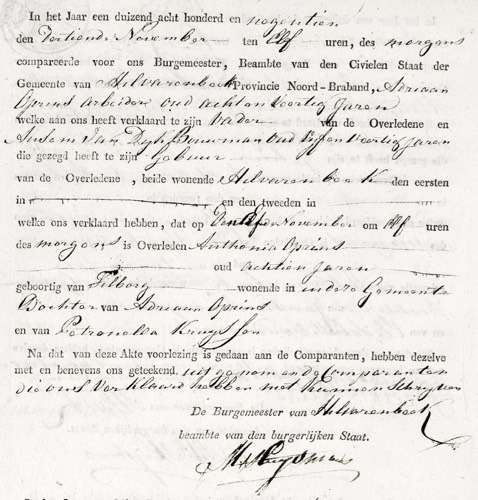 In het Jaar een duizend acht honderd en negentien
den dertiende November ten Elf uren, des morgens
compareerde voor ons Burgemeester, Beambte van den Civielen Staat der
Gemeente van Hilvarenbeek Provincie Noord-Braband, Adriaan
Oprins arbeider oud acht en Veertig Jaren
welke aan ons heeft verklaard te zijn Vader van de Overledene en
Ansem Van Dijk Bouwman Oud Vyf en Veertig Jaren
die gezegd heeft te zijn gebuur
van de Overledene, beide wonende Hilvarenbeek den eersten
in en den tweeden in
welke ons verklaard hebben, dat op Den November om Elf uren
des morgens is Overleden Anthonia Oprins
oud achtien Jaren
geboortig van Tilborg wonende in andere Gemeente
Dochter van Adriaan Oprins
en van Petronella
Na dat van deze Akte voorlezing is gedaan aan de Comparanten, hebben dezelve
met en benevens ons geteekend. uitgenomen de Comparanten
die ons Verklaard hebben niet kunnen Schryven
De Burgemeester van Hilvarenbeek
beambte van den burgerlijken Staat.